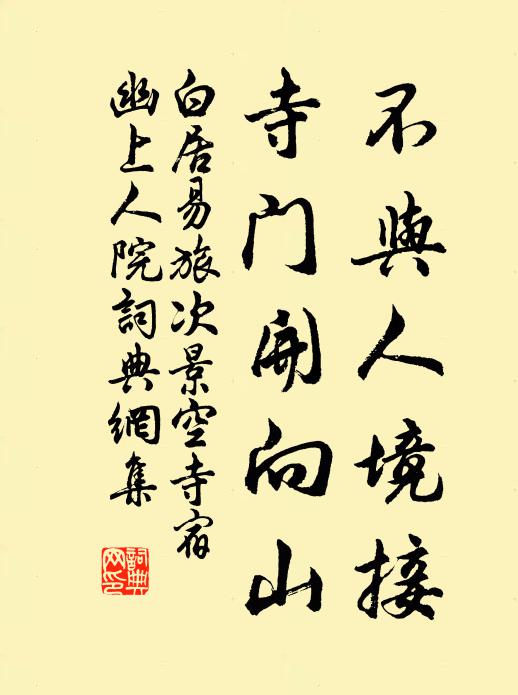 不與人境接
寺門開向山
白居易旅次景空寺宿
幽上人院詞典網集
詞典网印